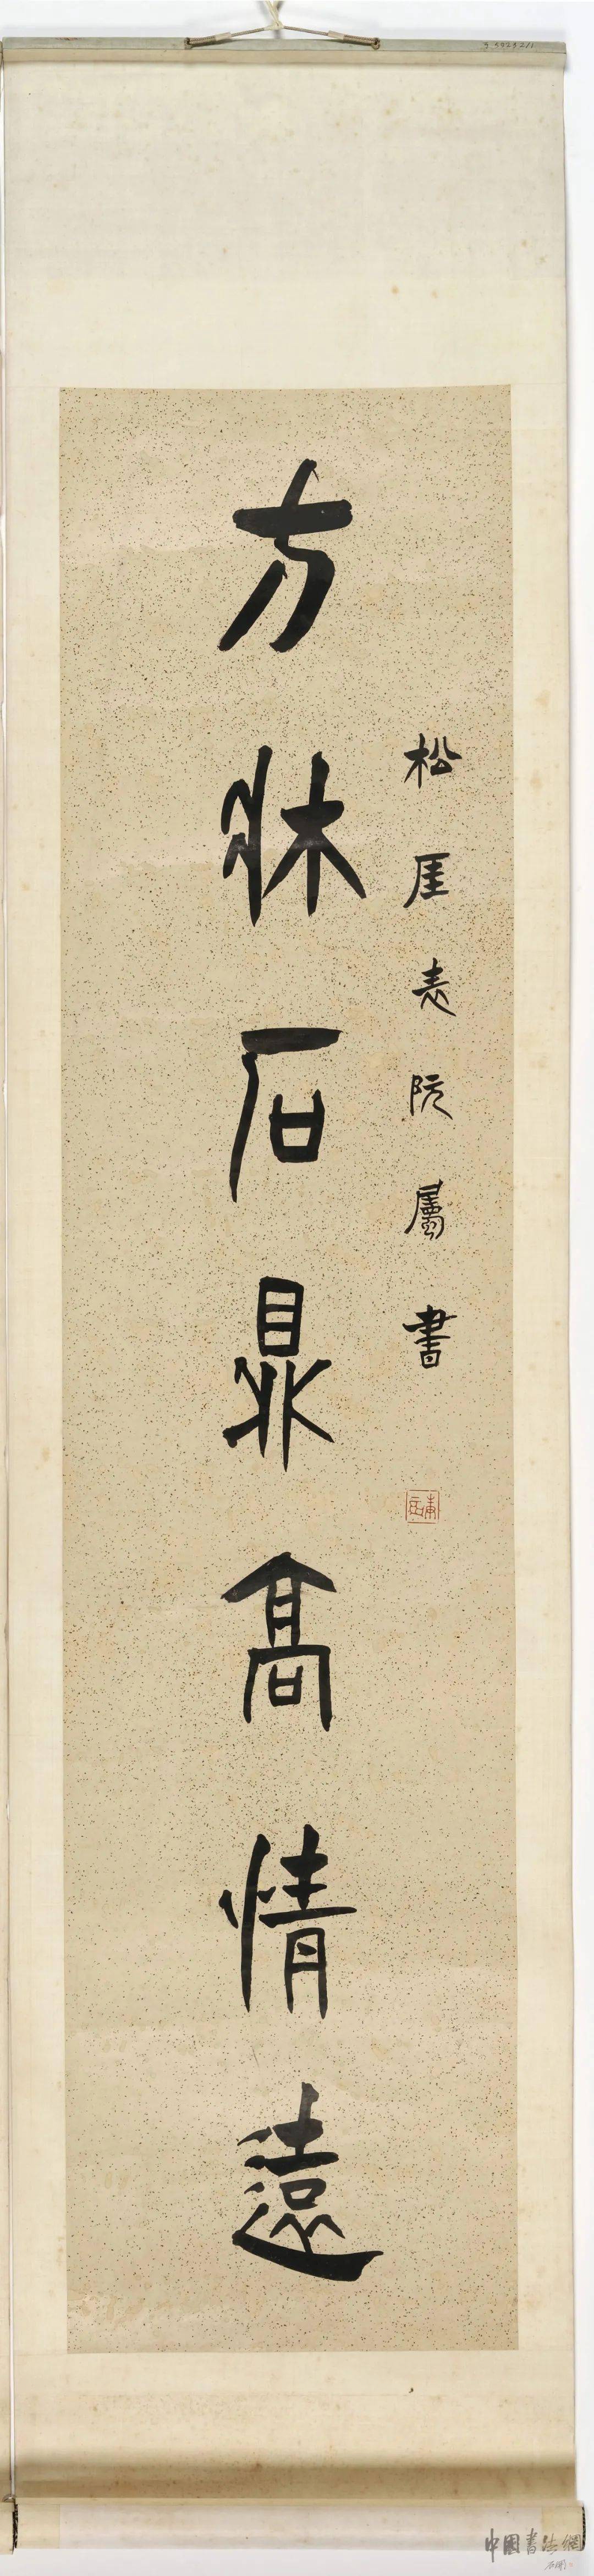 松厓表阮屬書
方牀石鼎高情遠
中國書法網